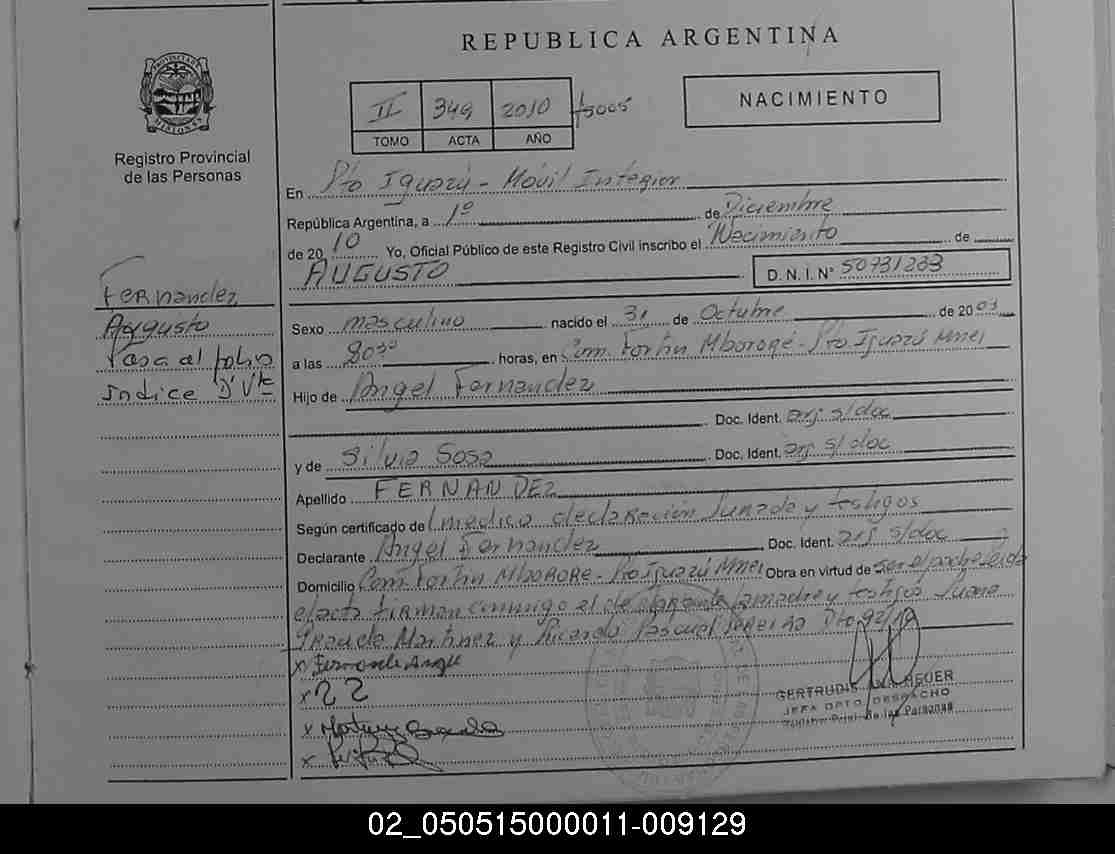 REPUBLICA ARGENTINA
PROVINCIA DE MISIONES
Registro Provincial
de las Personas
II 349 2010
TOMO ACTA AÑO
NACIMIENTO
En Pto Iguazú - Móvil Interior
República Argentina, a 1º de Diciembre
de 2010 Yo, Oficial Público de este Registro Civil inscribo el Nacimiento de
AUGUSTO D.N.I.Nº
Sexo masculino nacido el 31 de Octubre de 20
a las horas, en Com. Fortin Mbororé - Pto Iguazú Mnes
Hijo de Angel Fernandez
Doc. Ident. arj s/doc
y de Silvia Sosa Doc. Ident. arj s/doc
Apellido FERNANDEZ
Según certificado del médico declaración Jurada y testigos
Declarante Angel Fernandez Doc. Ident. arj s/doc
Domicilio Com. Fortin MBORORE - Pto Iguazú Mnes Obra en virtud de ser el padre leida
el acta firman conmigo el declarante la madre y testigos Juana
Graciela Martinez y Ricardo Pascual Dto 92/10
Fernandez
Augusto
Pasa al folio
indice D' Vte
x Fernande Angel
x
x
x
GERTRUDIS
JEFA DPTO DESPACHO
Registro Provl de las Personas
02_050515000011-009129